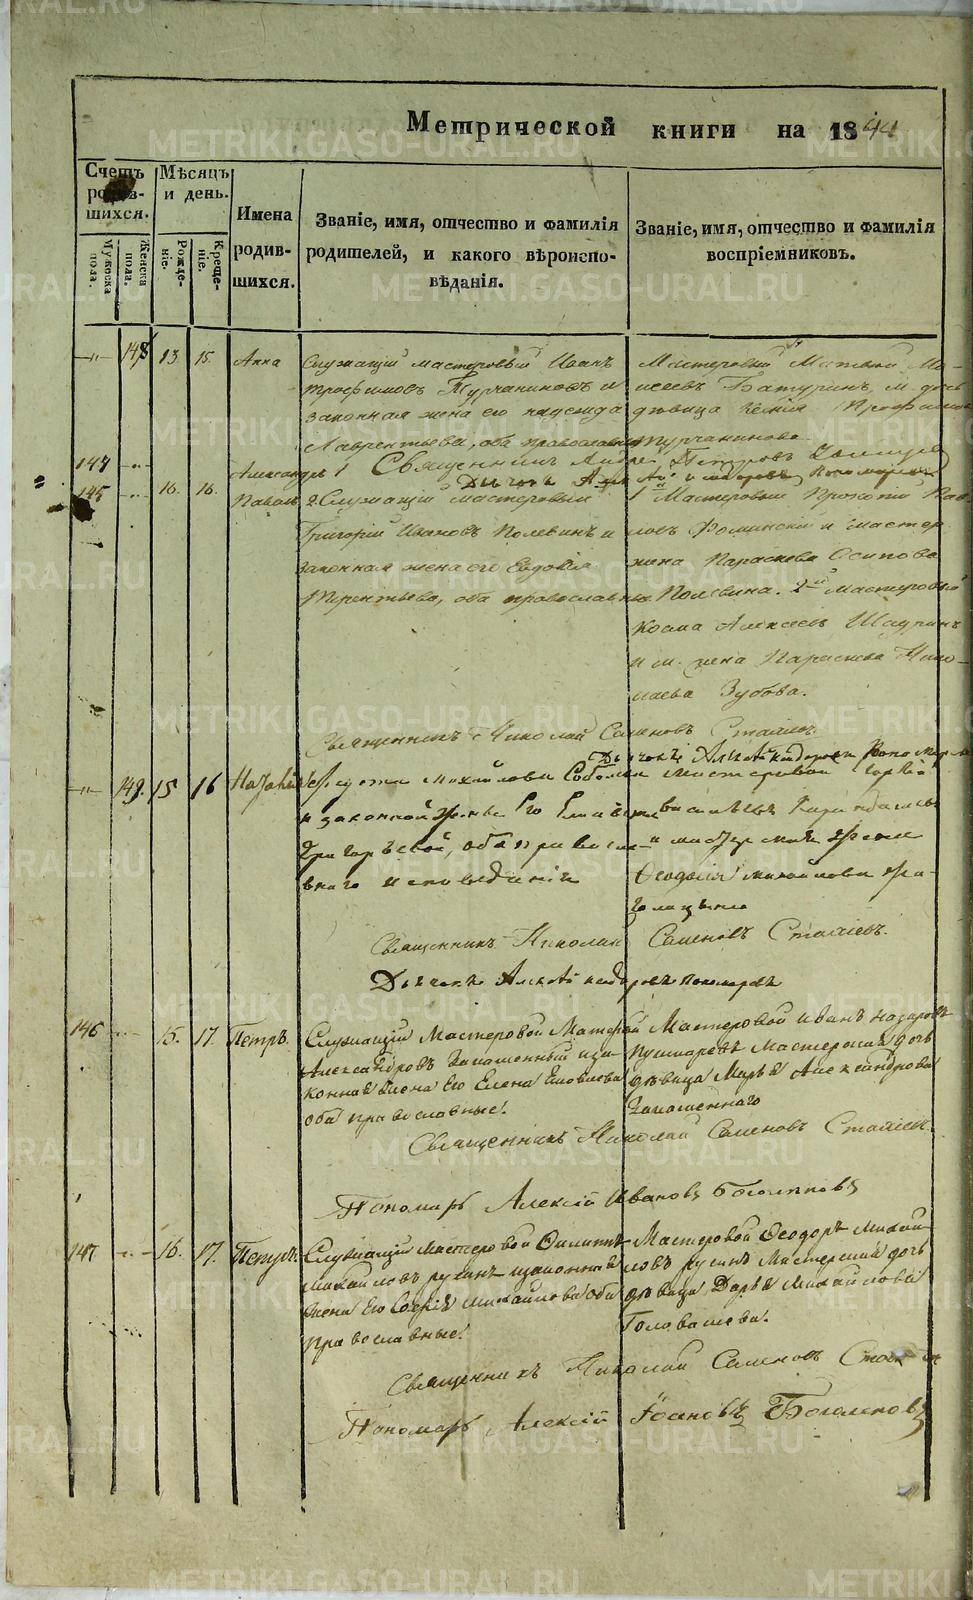 METRIKI.GASO-URAL.RU
Метрической книги на 1844
Счетъ родившихся.
Мужеска пола.
Женска пола.
Мѣсяцъ и день.
Рожденіе.
Крещеніе.
Имена родившихся.
Званіе, имя, отчество и фамилія родителей, и какого вѣроисповѣданія.
Званіе, имя, отчество и фамилія воспріемниковъ.
148 13 15. Анна
Служащій мастеровый Иванъ
Трофимовъ Турчаниновъ и
законная жена его Надежда
Лаврентьева, оба православныя
Мастеровый Матвей Мо-
исеевъ Батуринъ, м. дочь
дѣвица Ксенія Трофимова
Турчанинова.
Священникъ Андрей Петровъ
Дьячокъ
144
145 16. 16.
Александръ 1
Павелъ 2
Служащій мастеровый
Григорій Ивановъ Полевинъ и
законная жена его Евдокія
Терентьева, оба православныя
1 Мастеровый Прокопій Пав-
ловъ Фоминскій и мастер.
жена Параскева Осипова
Полевина. 2 мастеровый
Косма Алексеевъ Шадринъ
и м. жена Параскева Нико-
лаева Зубова.
Священникъ Николай Семеновъ Стахіевъ.
Дьячокъ Александровъ Пономаревъ
149. 15 16
Федота Михайлова Соболева
и законной жены его
Григорьевой, оба правосла-
внаго исповѣданія
Мастеровой
и мастерская жена
Феодосія Михайлова
Священникъ Николай Семеновъ Стахіевъ.
Дьячокъ Александровъ Пономаревъ
146 15. 17. Петръ.
Служащій Мастеровой Матвей
Александровъ Замошенный за-
конная жена его Елена Яковлева
оба православные.
Мастеровой Иванъ Назаровъ
Пушкаревъ Мастерская дочь
дѣвица Марья Александрова
Замошеннаго
Священникъ Николай Семеновъ Стахіевъ.
Пономарь Алексій Ивановъ Боголеповъ
147 16. 17. Петръ.
Служащій Мастеровой Филиппъ
Михайловъ Русинъ и законная
жена его Софія Михайлова оба
православные.
Мастеровой Феодоръ Михай-
ловъ Русинъ Мастерская дочь
дѣвица Дарья Михайлова
Голованева.
Священникъ Николай Семеновъ
Пономарь Алексій Іоановъ Боголеповъ